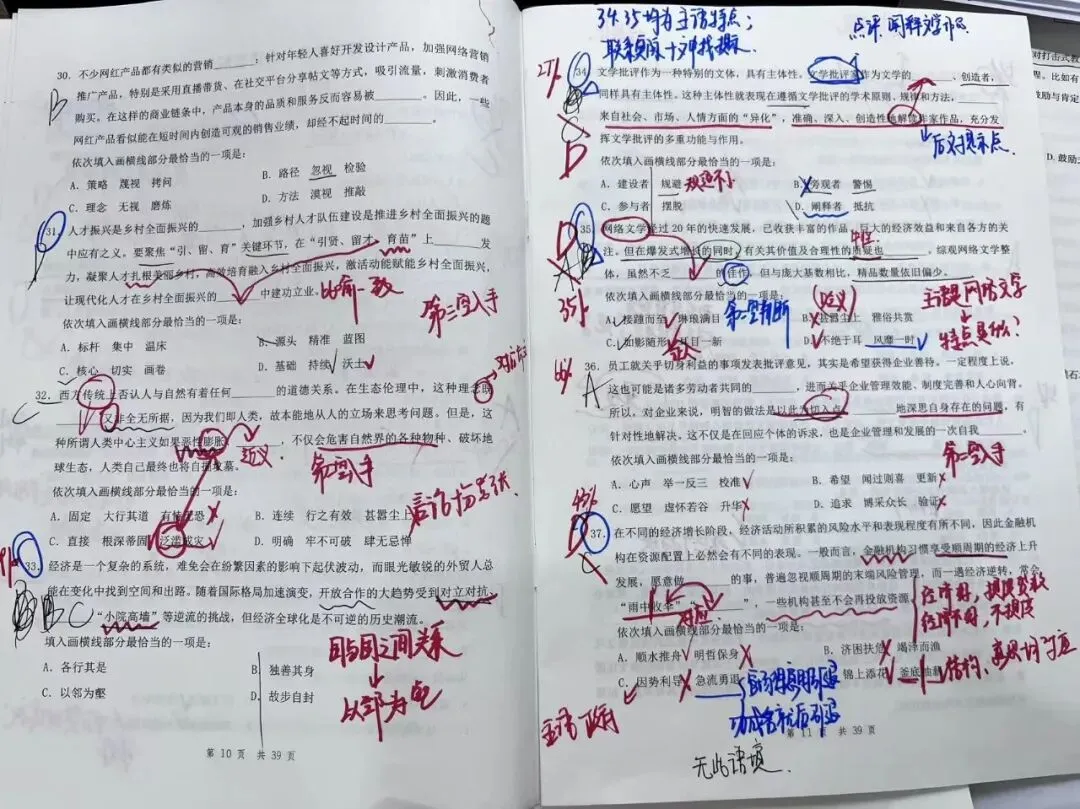 30. 不少网红产品都有类似的营销________：针对年轻人喜好开发设计产品，加强网络营销
推广产品，特别是采用直播带货、在社交平台分享帖文等方式，吸引流量，刺激消费者
购买。在这样的商业链条中，产品本身的品质和服务反而容易被________。因此，一些
网红产品看似能在短时间内创造可观的销售业绩，却经不起时间的________。
B
依次填入画横线部分最恰当的一项是：
A. 策略 蔑视 拷问 B. 路径 忽视 检验
C. 理念 无视 磨炼 D. 方法 漠视 推敲
31. 人才振兴是乡村全面振兴的________，加强乡村人才队伍建设是推进乡村全面振兴的题
中应有之义。要聚焦“引、留、育”关键环节，在“引贤、留才、育苗”上________发
力，凝聚人才扎根美丽乡村，高效培育融入乡村全面振兴，激活动能赋能乡村全面振兴，
让现代化人才在乡村全面振兴的________中建功立业。
与前一致
第三空入手
依次填入画横线部分最恰当的一项是：
A. 标杆 集中 温床 B. 源头 精准 蓝图
C. 核心 切实 画卷 D. 基础 持续 沃土
32. 西方传统上否认人与自然有着任何________的道德关系。在生态伦理中，这种理念
________又非全无所据，因为我们即人类，故本能地从人的立场来思考问题。但是，这
种所谓人类中心主义如果恶性膨胀、________，不仅会危害自然界的各种物种、破坏地
球生态，人类自己最终也将自掘坟墓。
C
近义
第三空入手
依次填入画横线部分最恰当的一项是：
A. 固定 大行其道 有恃无恐 B. 连续 行之有效 甚嚣尘上
C. 直接 根深蒂固 泛滥成灾 D. 明确 牢不可破 肆无忌惮
33. 经济是一个复杂的系统，难免会在纷繁因素的影响下起伏波动，而眼光敏锐的外贸人总
能在变化中找到空间和出路。随着国际格局加速演变，开放合作的大趋势受到对立对抗、
“小院高墙”等逆流的挑战，但经济全球化是不可逆的历史潮流。
B C
填入画横线部分最恰当的一项是：
A. 各行其是 B. 独善其身
C. 以邻为壑 D. 故步自封
国与国之间关系
以邻为壑
第 10 页 共 39 页
34.35均为主语特点；
点评、阐释文学作品.
34. 文学批评作为一种特别的文体，具有主体性。文学批评家作为文学的________、创造者，
同样具有主体性。这种主体性就表现在遵循文学批评的学术原则、规律和方法，________
来自社会、市场、人情方面的“异化”，准确、深入、创造性地解读作家作品，充分发
挥文学批评的多重功能与作用。
D
后文提示点.
依次填入画横线部分最恰当的一项是：
A. 建设者 规避 B. 旁观者 警惕
C. 参与者 摆脱 D. 阐释者 抵抗
35. 网络文学经过 20 年的快速发展，已收获丰富的作品、巨大的经济效益和来自各方的关
注。但在爆发式增长的同时，有关其价值及合理性的质疑也________。综观网络文学整
体，虽然不乏________的佳作，但与庞大基数相比，精品数量依旧偏少。
35%
依次填入画横线部分最恰当的一项是：
A. 接踵而至 琳琅满目 B. 甚嚣尘上 雅俗共赏
C. 如影随形 耳目一新 D. 不绝于耳 风靡一时
(贬义)
主语是网络文学
特点是什么？
36. 员工就关乎切身利益的事项发表批评意见，其实是希望获得企业善待。一定程度上说，
这也可能是诸多劳动者共同的________，进而关乎企业管理效能、制度完善和人心向背。
所以，对企业来说，明智的做法是以此为切入点，________地深思自身存在的问题，有
针对性地解决。这不仅是在回应个体的诉求，也是企业管理和发展的一次自我________。
66%
A
第二空入手
依次填入画横线部分最恰当的一项是：
A. 心声 举一反三 校准 B. 希望 闻过则喜 更新
C. 愿望 虚怀若谷 升华 D. 追求 博采众长 验证
37. 在不同的经济增长阶段，经济活动所积累的风险水平和表现程度有所不同，因此金融机
构在资源配置上必然会有不同的表现。一般而言，金融机构习惯享受顺周期的经济上升
发展，愿意做________的事，普遍忽视顺周期的末端风险管理，而一遇经济逆转，常会
“雨中收伞”、“________”，一些机构甚至不会再投放资源。
对应
依次填入画横线部分最恰当的一项是：
A. 顺水推舟 明哲保身 B. 济困扶危 竭泽而渔
C. 因势利导 急流勇退 D. 锦上添花 釜底抽薪
无此语境.
第 11 页 共 39 页